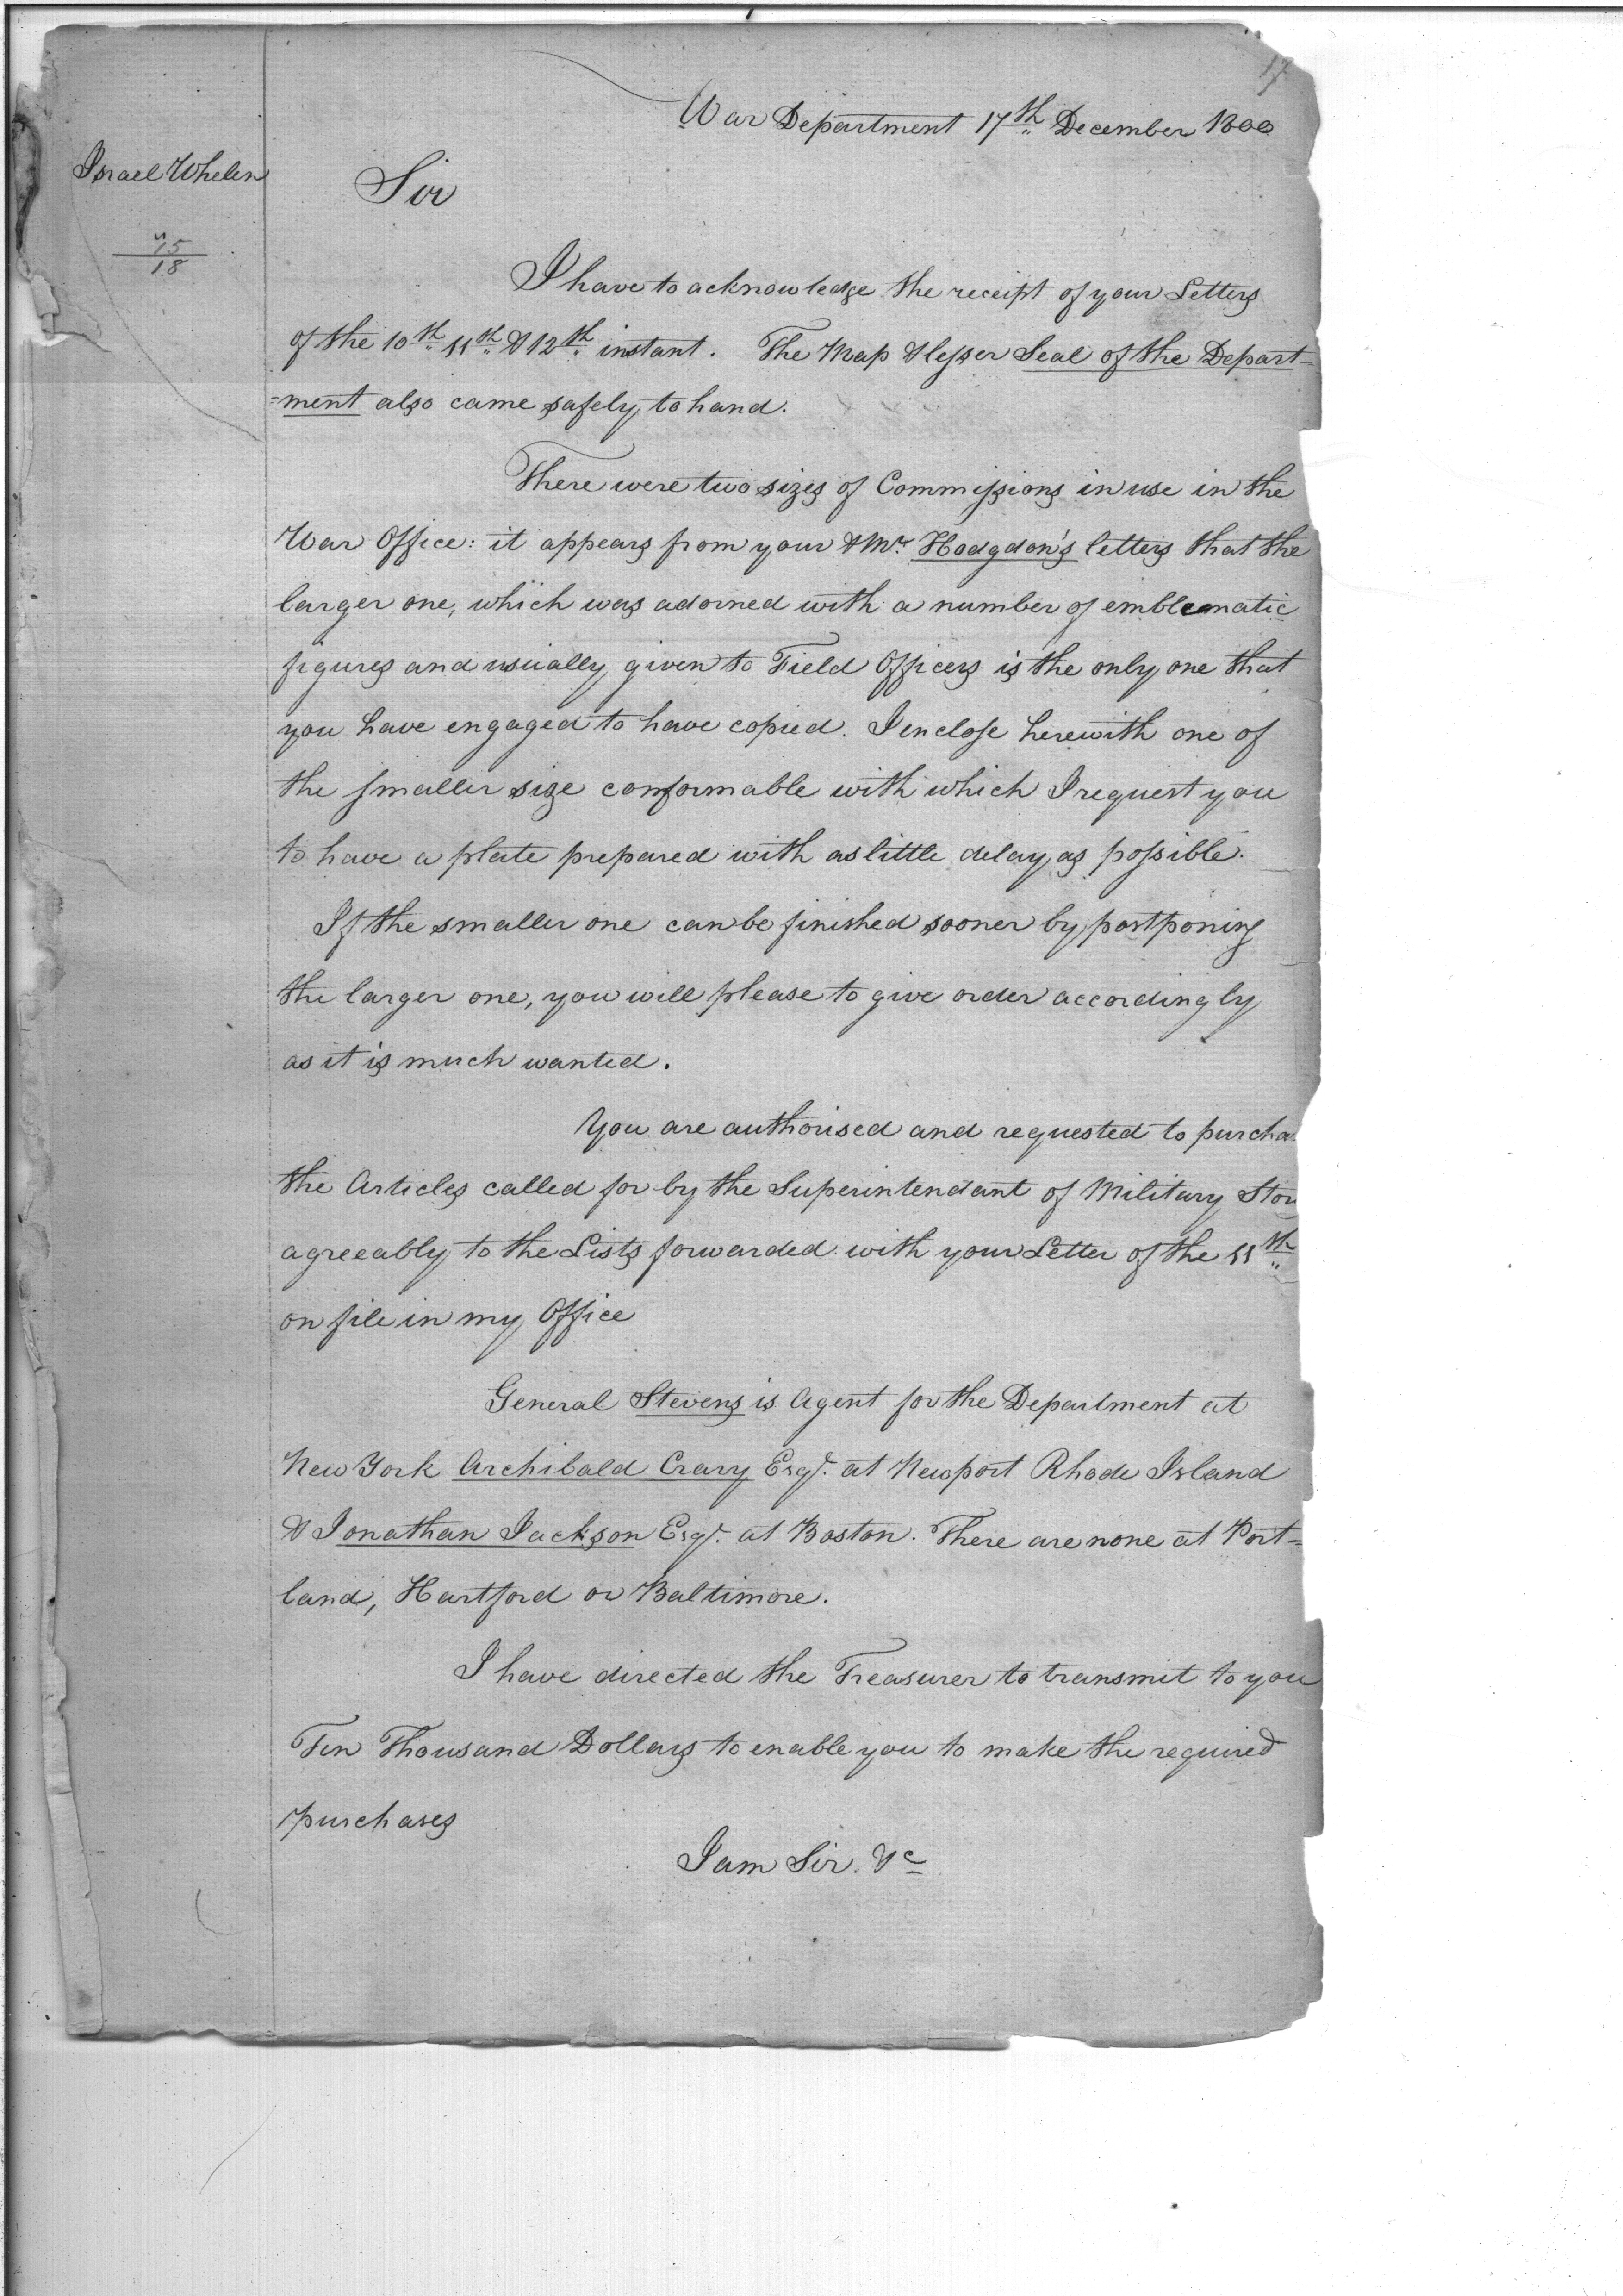 17
War Department 17th December 1800
Israel Whelen
Sir
15
18
I have to acknowledge the receipt of your Letters
of the 10th 11th & 12th instant. The Map & lesser Seal of the Depart=
=ment also came safely to hand.
There were two sizes of Commissions in use in the
War Office: it appears from your & Mr. Hodgdon's letters that the
larger one, which was adorned with a number of emblematic
figures and usually given to Field Officers is the only one that
you have engaged to have copied. I enclose herewith one of
the smaller size conformable with which I request you
to have a plate prepared with as little delay as possible.
If the smaller one can be finished sooner by postponing
the larger one, you will please to give order accordingly
as it is much wanted.
You are authorised and requested to purcha
the Articles called for by the Superintendant of Military Stor
agreeably to the Lists forwarded with your Letter of the 11th
on file in my Office
General Stevens is Agent for the Department at
New York Archibald Crary Esqr. at Newport Rhode Island
& Jonathan Jackson Esqr. at Boston. There are none at Port=
land, Hartford or Baltimore.
I have directed the Treasurer to transmit to you
Ten Thousand Dollars to enable you to make the required
purchases
I am Sir. &c